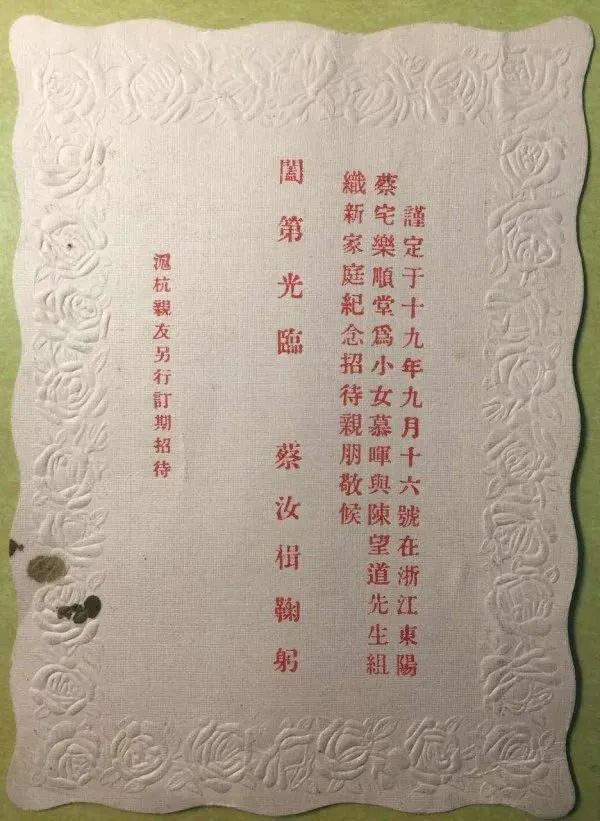 謹定于十九年九月十六號在浙江東陽
蔡宅樂順堂爲小女慕暉與陳望道先生組
織新家庭紀念招待親朋敬候
闔第光臨 蔡汝楫鞠躬
滬杭親友另行訂期招待